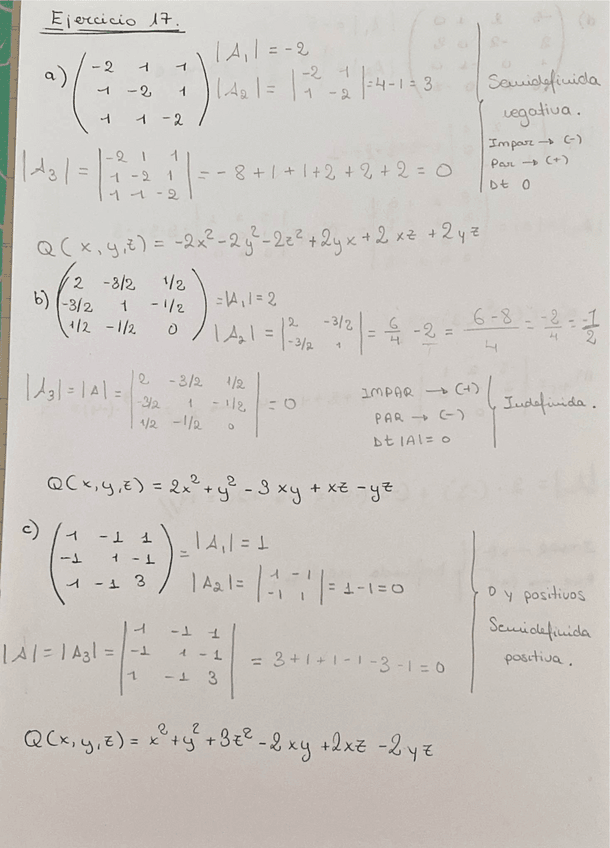 Ejercicio 17.
a) ( -2 1 1 ) |A₁| = -2
( 1 -2 1 ) |A₂| = | -2 1 | = 4-1 = 3
( 1 1 -2 ) | 1 -2 |
Semidefinida
negativa.
Impar → (-)
Par → (+)
Dt 0
|A₃| = | -2 1 1 |
| 1 -2 1 | = -8+1+1+2+2+2 = 0
| 1 1 -2 |
Q(x,y,z) = -2x²-2y²-2z²+2yx+2xz+2yz
b) ( 2 -3/2 1/2 )
( -3/2 1 -1/2 ) = |A₁| = 2
( 1/2 -1/2 0 ) |A₂| = | 2 -3/2 | = 6/4 - 2 = (6-8)/4 = -2/4 = -1/2
| -3/2 1 |
|A₃| = |A| = | 2 -3/2 1/2 |
| -3/2 1 -1/2 | = 0
| 1/2 -1/2 0 |
IMPAR → (+)
PAR → (-)
Dt |A| = 0
Indefinida.
Q(x,y,z) = 2x²+y²-3xy+xz-yz
c) ( 1 -1 1 ) = |A₁| = 1
( -1 1 -1 )
( 1 -1 3 ) |A₂| = | 1 -1 | = 1-1=0
| -1 1 |
0 y positivos
Semidefinida
positiva.
|A| = |A₃| = | 1 -1 1 |
| -1 1 -1 | = 3+1+1-1-3-1=0
| 1 -1 3 |
Q(x,y,z) = x²+y²+3z²-2xy+2xz-2yz